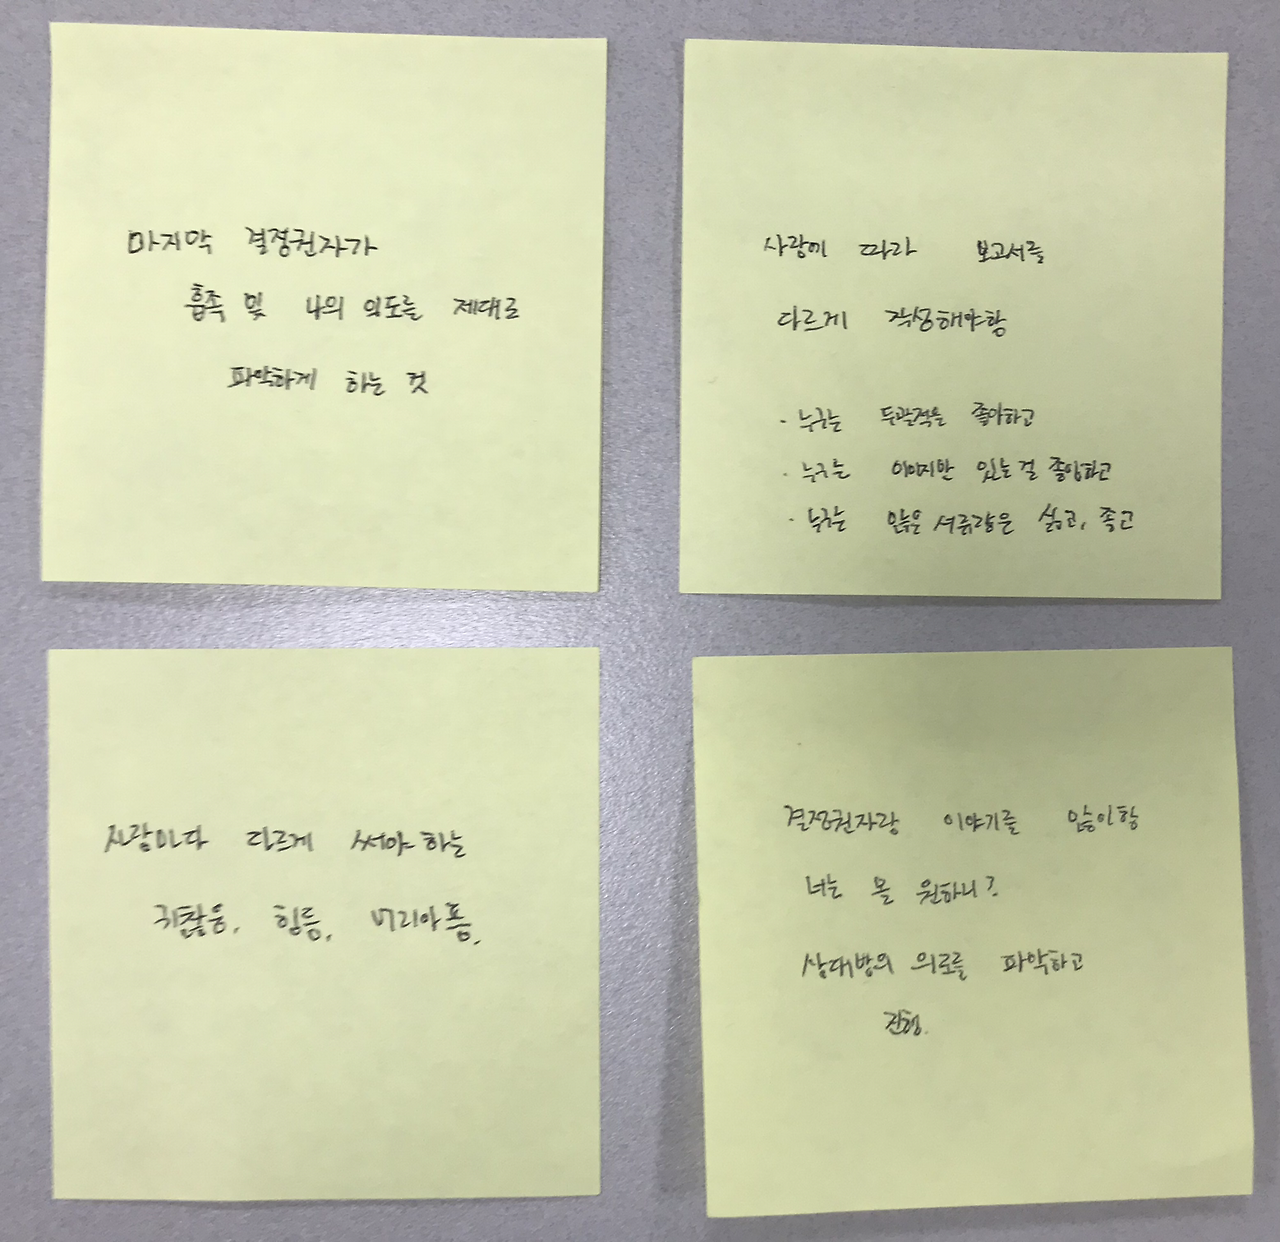 마지막 결정권자가
흡족 및 나의 의도를 제대로
파악하게 하는 것
사람에 따라 보고서를
다르게 작성해야함
· 누구는 두괄적을 좋아하고
· 누구는 이미지만 있는걸 좋아하고
· 누구는 많은 서류같은 싫고, 좋고
사람마다 다르게 써야 하는
귀찮음, 힘듬, 머리아픔.
결정권자랑 이야기를 많이함
너는 몰 원하니?
상대방의 의로를 파악하고
진행.